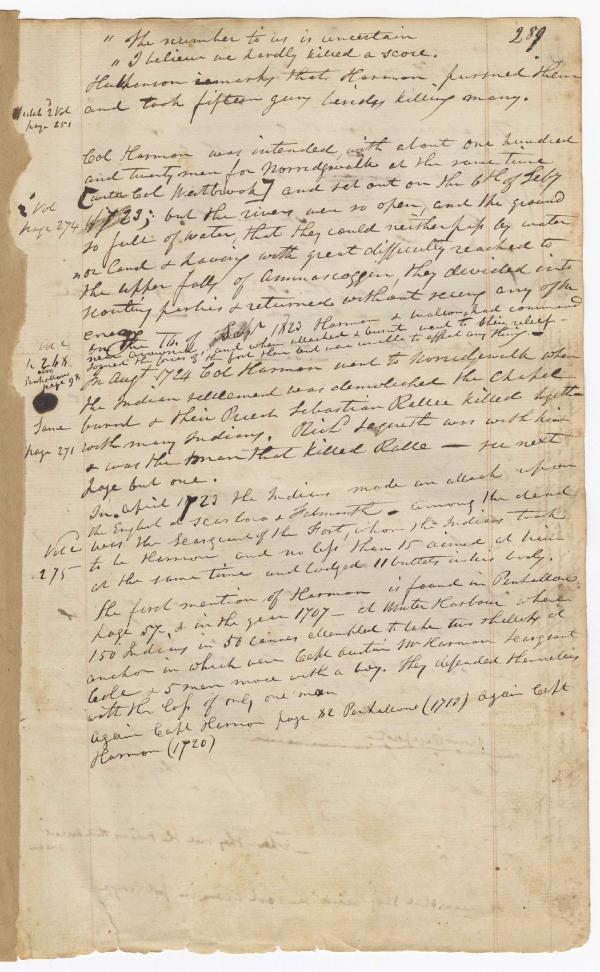 289
" The number to us is uncertain
" I believe we hardly killed a score.
Hutchinson remarks that Harmon pursued them
and took fifteen guns besides killing many.
2 Vol
page 251
Col Harmon was intended with about one hundred
and twenty men for Norridgewalk at the same time
[with Col Westbrook] and set out on the 6th of Feby
2 Vol
page 274
1723; but the rivers were so open and the ground
so full of water, that they could neither pass by water
nor land & having with great difficulty reached to
the upper falls of Ammascoggin, they divided into
scouting parties & returned without seeing any of the
enemy
In the of Sept 1823 Harmon & had command
near , and when attacked & burnt went to their relief
joined the force of the fort then but were unable to effect any thing
268
also
Penhallow
page 98
In Augt. 1724 Col Harmon went to Norridgewalk when
the Indian settlement was demolished the Chapel
burnt & their Priest Sebastian Rallee killed together
Same
page 271
with many Indians. Richd Jaques was with him
& was the man that killed Ralle — see next
page but one.
In April 1723 the Indians made an attack upon
the English at Scarboro & Falmouth - among the dead
Vol 2
275
was the Seargeant of the Fort, whom the Indians took
to be Harmon and no less than 15 aimed at him
at the same time and lodged 11 bullets in his body.
The first mention of Harmon is found in Penhallow
page 57, & in the year 1707 — at Winter Harbour where
150 Indians in 50 canoes attempted to take two shallops at
anchor in which were Capt Austin Mr Harmon Seargeant
Cole & 5 men more with a boy. They defended themselves
with the loss of only one man
Again Capt Harmon page 82 Penhallow (1713) Again Capt
Harmon (1720)